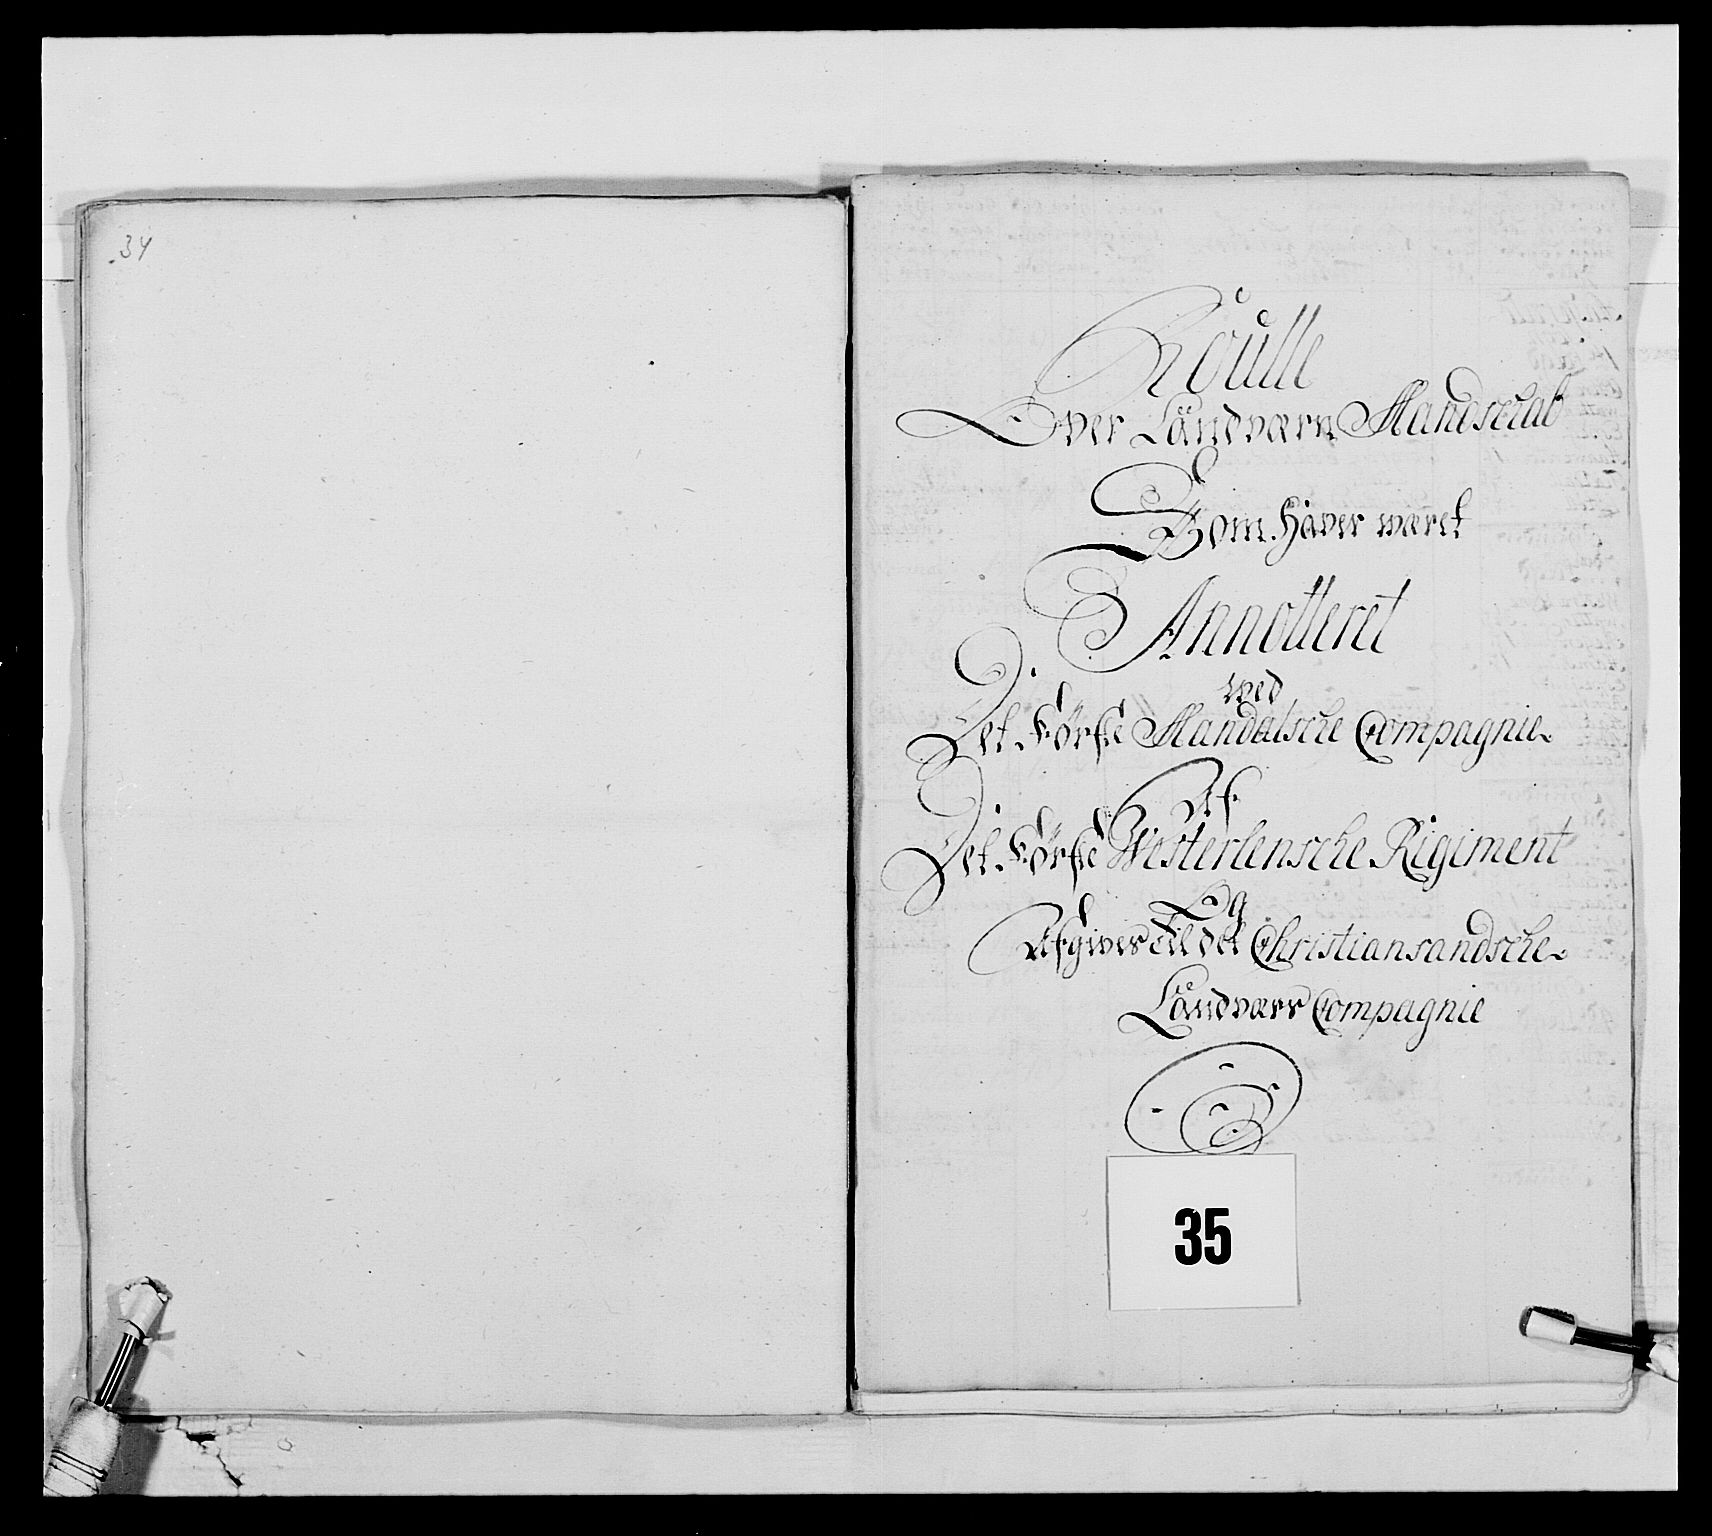 34
Roulle
Over Landværn Mandschab
Som haver wæret
Annotteret
wed
Det Første Mandalsche Compagnie
Af
Det Første Westerlensche Rigiment
Og
Afgives til det Christiansandsche
Landværs Compagnie
35